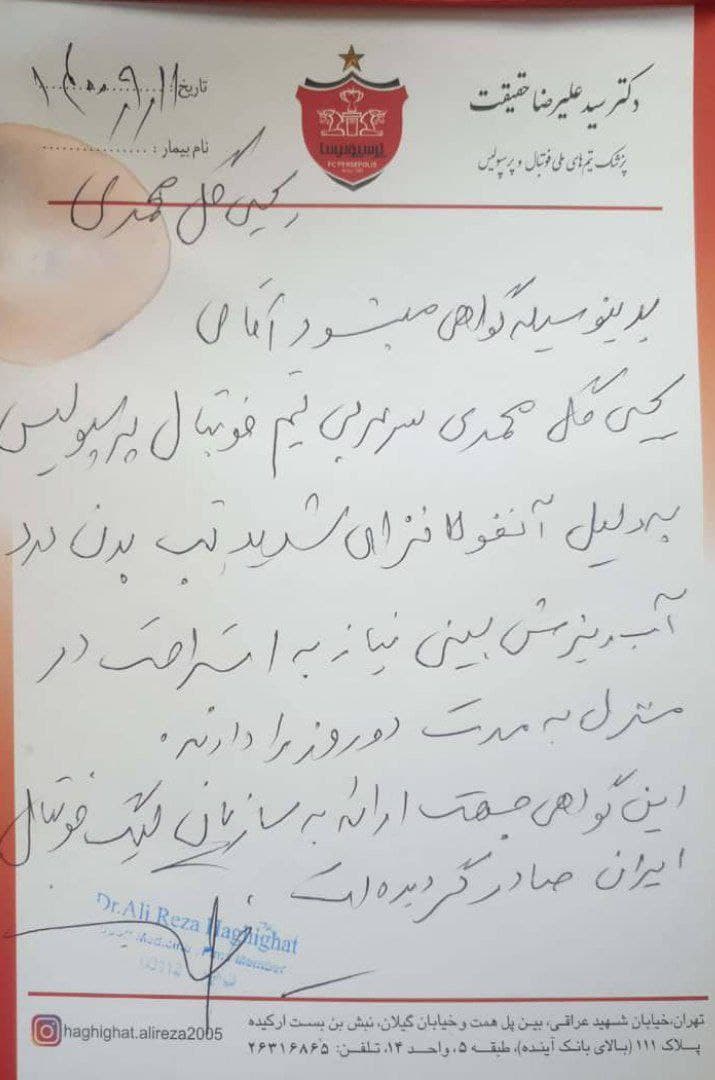 دکتر سید علیرضا حقیقت
پزشک تیم‌های ملی فوتبال و پرسپولیس
پرسپولیس
FC PERSEPOLIS
تاریخ: ۱۴۰۰٫۹٫۱۱
نام بیمار:
یحیی گل محمدی
بدینوسیله گواهی میشود آقای
یحیی گل محمدی سرمربی تیم فوتبال پرسپولیس
به دلیل آنفولانزای شدید تب بدن درد
آب ریزش بینی نیاز به استراحت در
منزل به مدت دو روز را دارند.
این گواهی جهت ارائه به سازمان لیگ فوتبال
ایران صادر گردیده است.
Dr.Ali Reza Haghighat
تهران،خیابان شهید عراقی، بین پل همت و خیابان گیلان، نبش بن بست ارکیده
پلاک ۱۱۱ (بالای بانک آینده)، طبقه ۵، واحد ۱۴، تلفن: ۲۶۳۱۶۸۶۵
haghighat.alireza2005